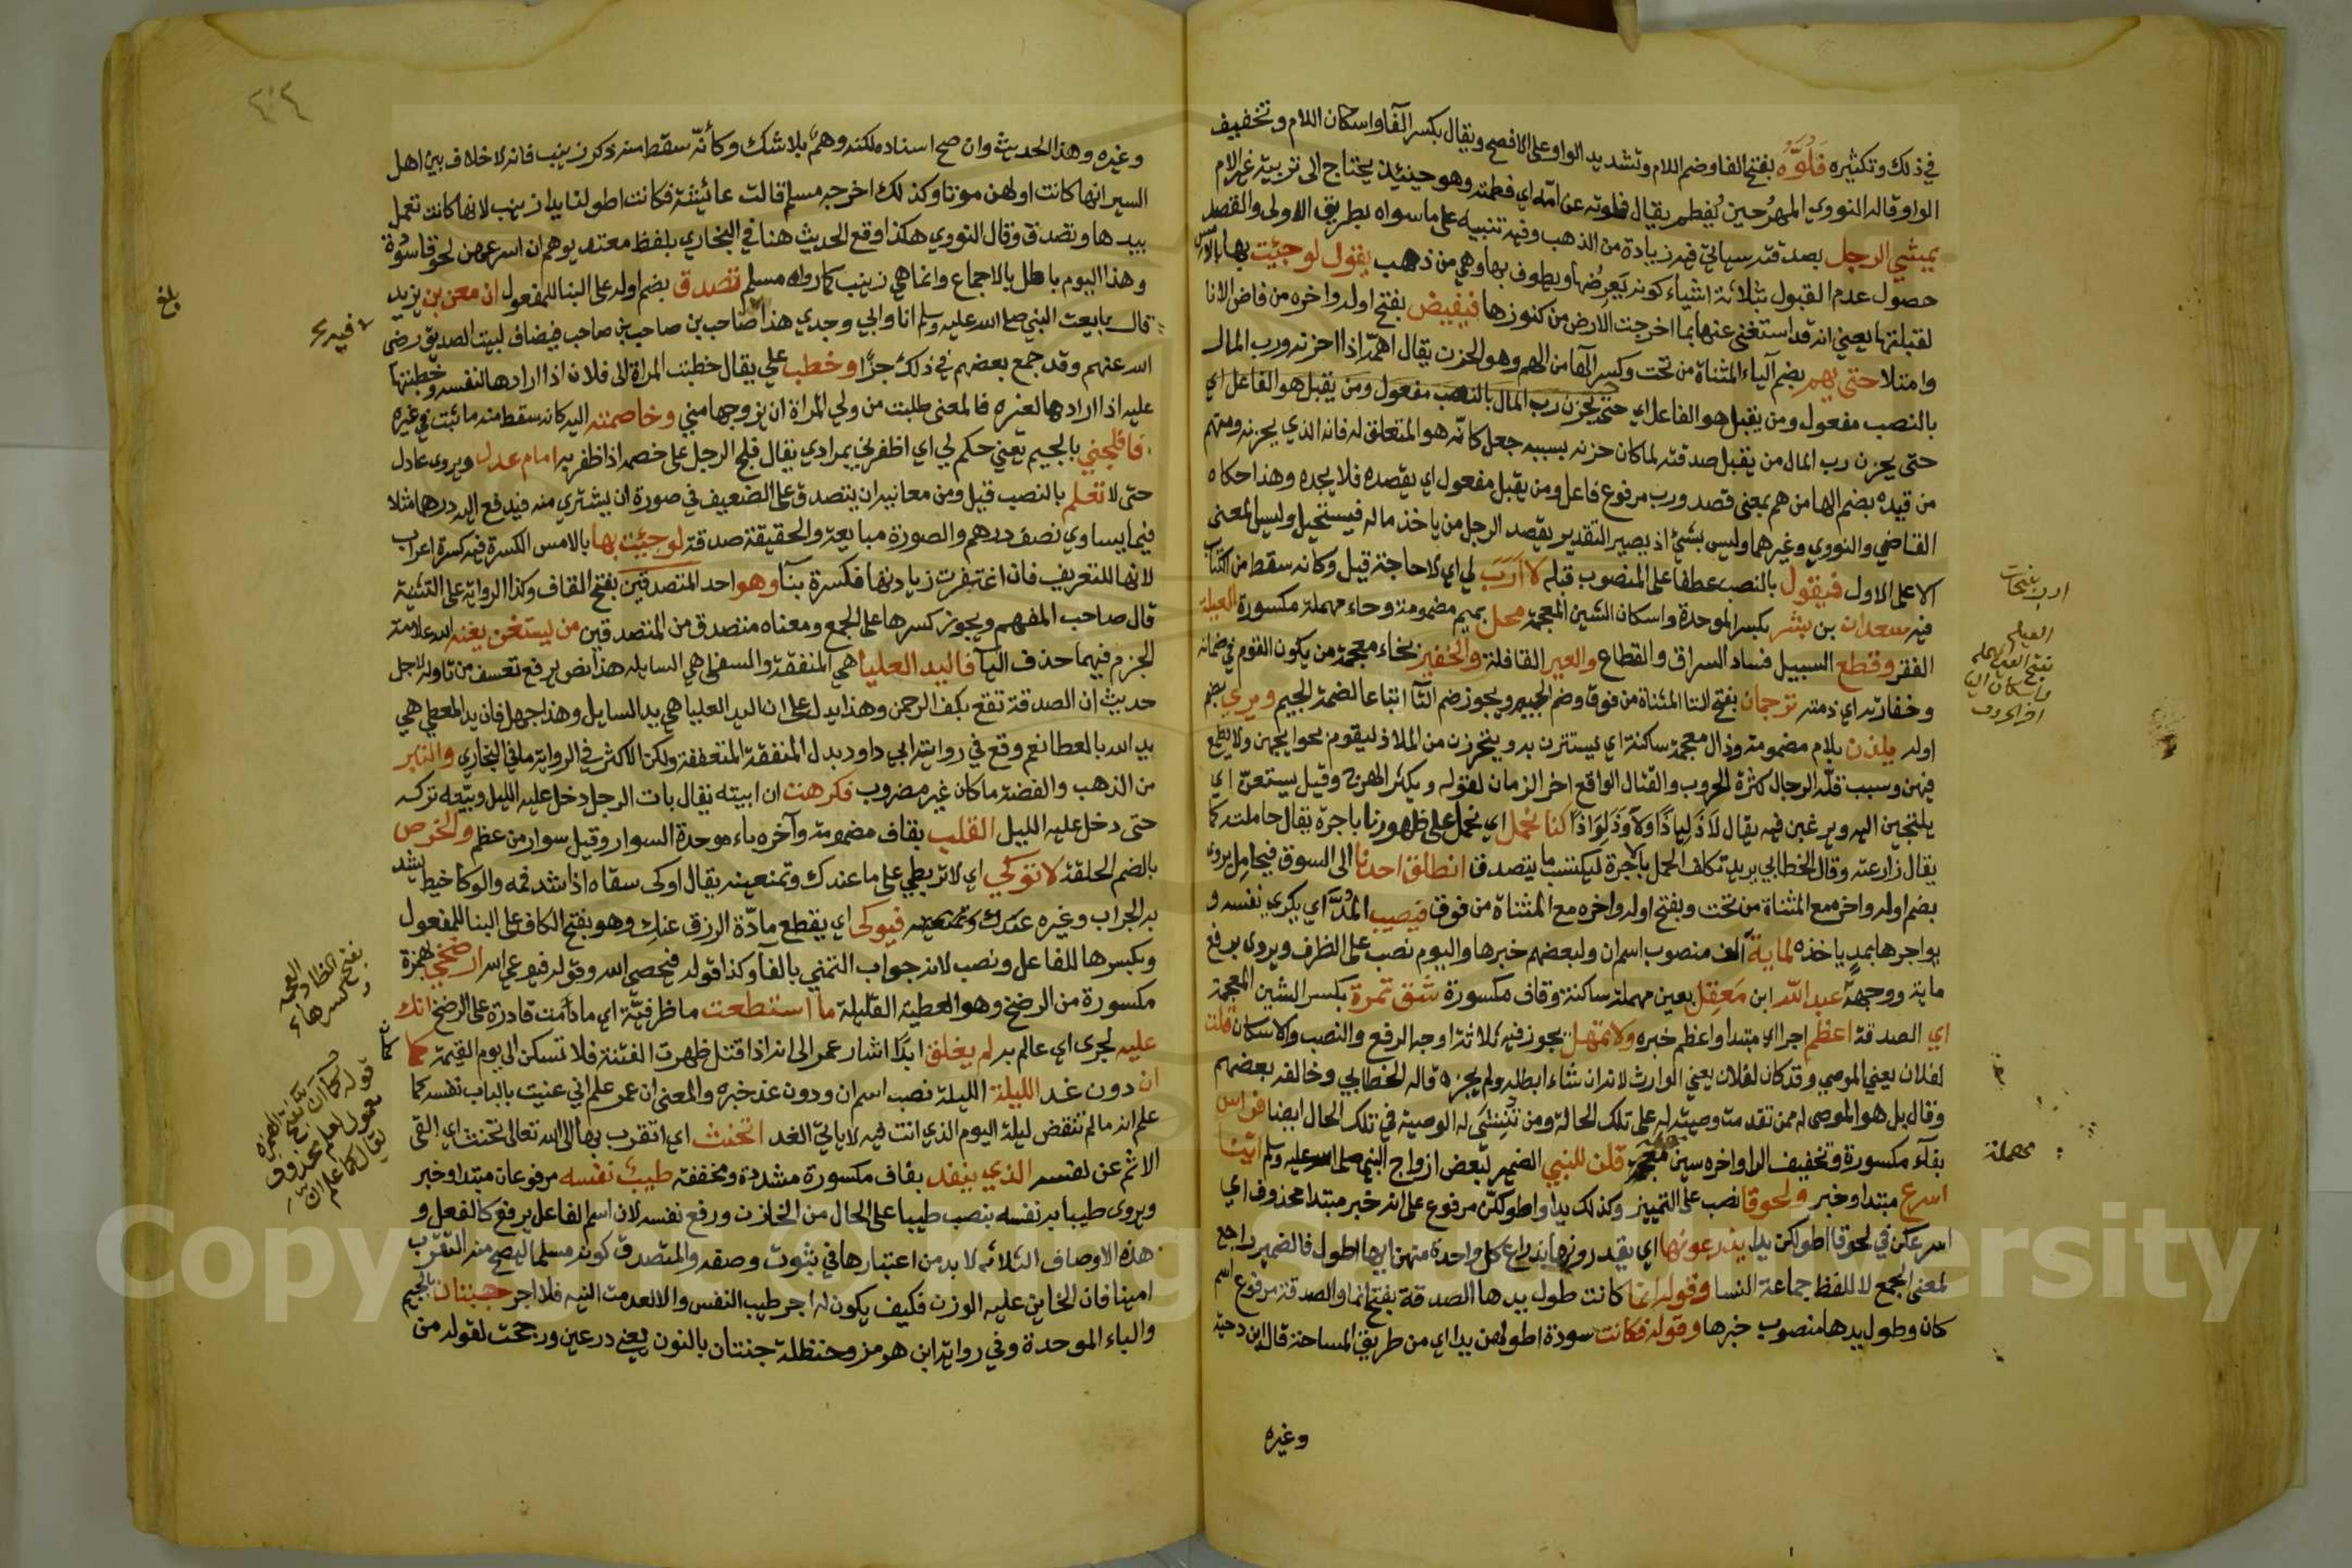 في ذلك وتكثيره فَلُوَّه بفتح الفا وضم اللام وتشديد الواو على الافصح ويقال بكسر الفا واسكان اللام وتخفيف
الواو قاله النووي المهر حين يُفطم يقال فلوته عن امّه اي فطمته وهو حينئذ يحتاج الى تربية غير الام
يمشي الرجل بصدقته سياتي فيه زيادة من الذهب وفيه تنبيه على ماسواه بطريق الاولى والقصد
حصول عدم القبول بثلاثة اشياء كونه يَعرِضُها ويطوف بها وهي من ذهب يقول لو جيت بها بالامس
لقبلتها يعني انه قد استغنى عنها بما اخرجت الارض من كنوزها فيفيض بفتح اوله واخره من فاض الانا
وامتلا حتى يهم بضم الياء المثناة من تحت وكسر الها من الهم وهو الحزن يقال اهمّه اذا احزنه ورب المال
بالنصب مفعول ومن يقبل هو الفاعل اي حتى يحزن رب المال بالنصب مفعول ومن يقبل هو الفاعل اي
حتى يحزن رب المال من يقبل صدقته لما كان حزنه بسببه جعل كانّه هو المتعلق له فانه الذي يحزنه ومنهم
من قيده بضم الها من هم بمعنى قصد ورب مرفوع فاعل ومن يقبل مفعول اي يقصده فلا يجده وهذا حكاه
القاضي والنووي وغيرهما وليس بشيئ اذ يصير التقدير يقصد الرجل من ياخذ ماله فيستحيل وليس المعنى
الا على الاول فيقول بالنصب عطفا على المنصوب قبله لا اَرَبَ لي اي لا حاجة قيل وكانه سقط من الكتاب
فيه سعدان بن بشر بكسر الموحدة واسكان الشين المعجمة محل بميم مضمومة وحاء مهملة مكسورة العيلة
الفقر وقطع السبيل فساد السراق والقطاع والعير القافلة والخفير بخاء معجمة من يكون القوم في ضمانه
وخفارته اي ذمته ترجمان بفتح التا المثناة من فوق وضم الجيم ويجوز ضم التا اتباعا لضمة الجيم ويري بضم
اوله يلذن بلام مضمومة وذال معجمة ساكنة اي يستترن به ويتحرزن من الملاذ ليقوم بحوايجهن ولا يطمع
فيهن وسبب قلة الرجال كثرة الحروب والقتال الواقع اخر الزمان لقوله ويكثر الهرج وقيل يستعن اي
يلتجين اليه ويرغبن فيه يقال لاَذَ لِياذًا ولاَوَذَ لِوَاذًا كنا نحمل اي نحمل على ظهورنا باجرة يقال حاملته كما
يقال زارعته وقال الخطابي يريد تكلف الحمل بالاجرة ليكتسب ما يتصدق انطلق احدنا الى السوق فيحامل يروى
بضم اوله واخره مع المثناة من تحت وبفتح اوله واخره مع المثناة من فوق فيصيب المُدَّ اي يكري نفسه و
يواجرها بمدٍ ياخذه لماية الف منصوب اسم ان ولبعضهم خبرها واليوم نصب على الظرف ويروى برفع
ماية ووجهه عبد الله ابن مَعقِل بعين مهملة ساكنة وقاف مكسورة شق تمرة بكسر الشين المعجمة
اي الصدقة اعظم اجرا اي مبتدا واعظم خبره ولا تمهل يجوز فيه ثلاثة اوجه الرفع والنصب والاسكان قلت
لفلان يعني الموصي وقد كان لفلان يعني الوارث لانه ان شاء ابطله ولم يجزه قاله الخطابي وخالفه بعضهم
وقال بل هو الموصى له ممن تقدمت وصيته له على تلك الحالة ومن تنشئ له الوصية في تلك الحال ايضا فراس
بفآء مكسورة وتخفيف الرا واخره سين قلن للنبي الضمير لبعض ازواج النبي صلى الله عليه وسلم ايتنا
اسرع مبتدا وخبر ولحوقا نصب على التمييز وكذلك يدا واطولكنّ مرفوع على انه خبر مبتدا محذوف اي
اسرعكن في لحوقا اطولكن يدا يذرعونها اي يقدرونها بذراع كل واحدة منهن ايها اطول فالضمير راجع
لمعنى الجمع لا للفظ جماعة النسا وقوله انما كانت طول يدها الصدقة بفتح انما والصدقة مرفوع اسم
كان وطول يدها منصوب خبرها وقوله فكانت سودة اطولهن يدا اي من طريق المساحة قال ابن دحية
وغيره
ارب بفتحات
العيلة
بفتح العين المهملة
واسكان اليا
اخر الحروف
مهملة
٢٠٢
وغيره وهذا الحديث وان صح اسناده لكنه وهمٌ بلا شك وكأنّه سقط منه ذكر زينب فانه لا خلاف بين اهل
السير انها كانت اولهن موتا وكذلك اخرجه مسلم قالت عائشة فكانت اطولنا يدا زينب لانها كانت تعمل
بيدها وتصدق وقال النووي هكذا وقع الحديث هنا في البخاري بلفظ معتمد يوهم ان اسرعهن لحوقا سودة
وهذا اليوم باطل بالاجماع وانما هي زينب كما رواه مسلم تصدق بضم اوله على البنا للمفعول ان معن بن يزيد
قال بايعت النبي صلى الله عليه وسلم انا وابي وجدي هذا صاحب بن صاحب بن صاحب فيضاف لبيت الصديق رضي
الله عنهم وقد جمع بعضهم في ذلك جزًا وخطب علي يقال خطبت المراة الى فلان اذا ارادها لنفسه وخطبتها
عليه اذا ارادها لغيره فالمعنى طلبت من ولي المراة ان يزوجها مني وخاصمته اليه كانه سقط منه ما ثبت في غيره
فافلجني بالجيم يعني حكم لي اي اظفرني بمرادي يقال فلج الرجل على خصمه اذا ظفر به امام عدل ويروى عادل
حتى لا تعلم بالنصب قيل ومن معانيه ان يتصدق على الضعيف في صورة ان يشتري منه فيدفع اليه درهما مثلا
فيما يساوي نصف درهم والصورة مبايعة والحقيقة صدقة لو جيت بها بالامس الكسرة فيه كسرة اعراب
لانها للتعريف فان اعتبرت زيادتها فكسرة بنا وهو احد المتصدقين بفتح القاف وكذا الرواية على التثنية
قال صاحب المفهم ويجوز كسرها على الجمع ومعناه متصدق من المتصدقين من يستغن يغنه الله علامة
الجزم فيهما حذف اليآ فاليد العليا هي المنفقة والسفلى هي السايلة هذا نص يرفع تعسف من تاوله لاجل
حديث ان الصدقة تقع بكف الرحمن وهذا يدل على ان اليد العليا هي يد السايل وهذا جهل فان يد المعطي هي
يد الله بالعطا نعم وقع في رواية ابي داود بدل المنفقة المتعففة ولكن الاكثر في الرواية ما في البخاري والتبر
من الذهب والفضة ما كان غير مضروب فكرهت ان ابيته يقال بات الرجل دخل عليه الليل وبيّته تركه
حتى دخل عليه الليل القلب بقاف مضمومة وآخره باء موحدة السوار وقيل سوار من عظم والخرص
بالضم الحلقة لا توكي اي لا تربطي على ما عندك وتمنعينه يقال اوكى سقاه اذا شد فمه والوكا خيط يشد
به الجراب وغيره فيوكى اي يقطع مادّة الرزق عنكِ وهو بفتح الكاف على البنا للمفعول
وبكسرها للفاعل ونصب لانه جواب التمني بالفآ وكذا قوله فيحصي الله وقوله فيوعي الله ارضخي بهمزة
مكسورة من الرضخ وهو العطية القليلة ما استطعت ما ظرفيّة اي ما دامَت قادرة على الرضخ انك
عليه لجرى اي عالم به لم يغلق ابدًا اشار عمر الى انه اذا قتل ظهرت الفتنة فلا تسكن الى يوم القيمة كما
ان دون غد الليلة الليلة نصب اسم ان ودون غد خبره والمعنى ان عمر علم اني عنيت بالباب نفسه كما
علم انه ما لم تنقض ليلة اليوم الذي انت فيه لا ياتي الغد اتحنث اي اتقرب بها الى الله تعالى تحنث اي القى
الاثم عن نفسه الذي ينفد بقاف مكسورة مشددة ومخففة طيبٌ نفسه مرفوعان مبتدا وخبر
ويروى طيبا به نفسه بنصب طيبا على الحال من الخازن ورفع نفسه لان اسم الفاعل يرفع كالفعل و
هذه الاوصاف الثلاثه لا بد من اعتبارها في ثبوت وصفه والمتصدق كونه مسلما ليصح منه التقرب
امينا فان الخاين عليه الوزر فكيف يكون له اجر طيب النفس والا لعدمت النيه فلا اجر جبتنان بالجيم
والباء الموحدة وفي رواية ابن هرمز وحنظلة جنتان بالنون يعني درعين ورجحت لقوله من
بلغ
بفتح الظا
المعجمة
وكسرها
قوله كما ان بفتح الهمزة
معمول لعلم محذوف
يقال كما علم ان
Copyright © King Saud University